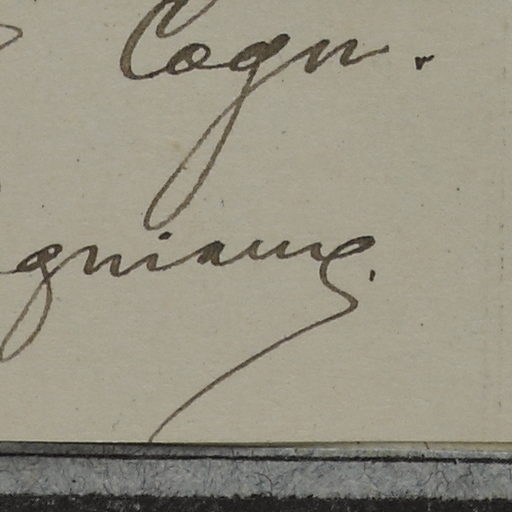 Cogn.
gniaux.